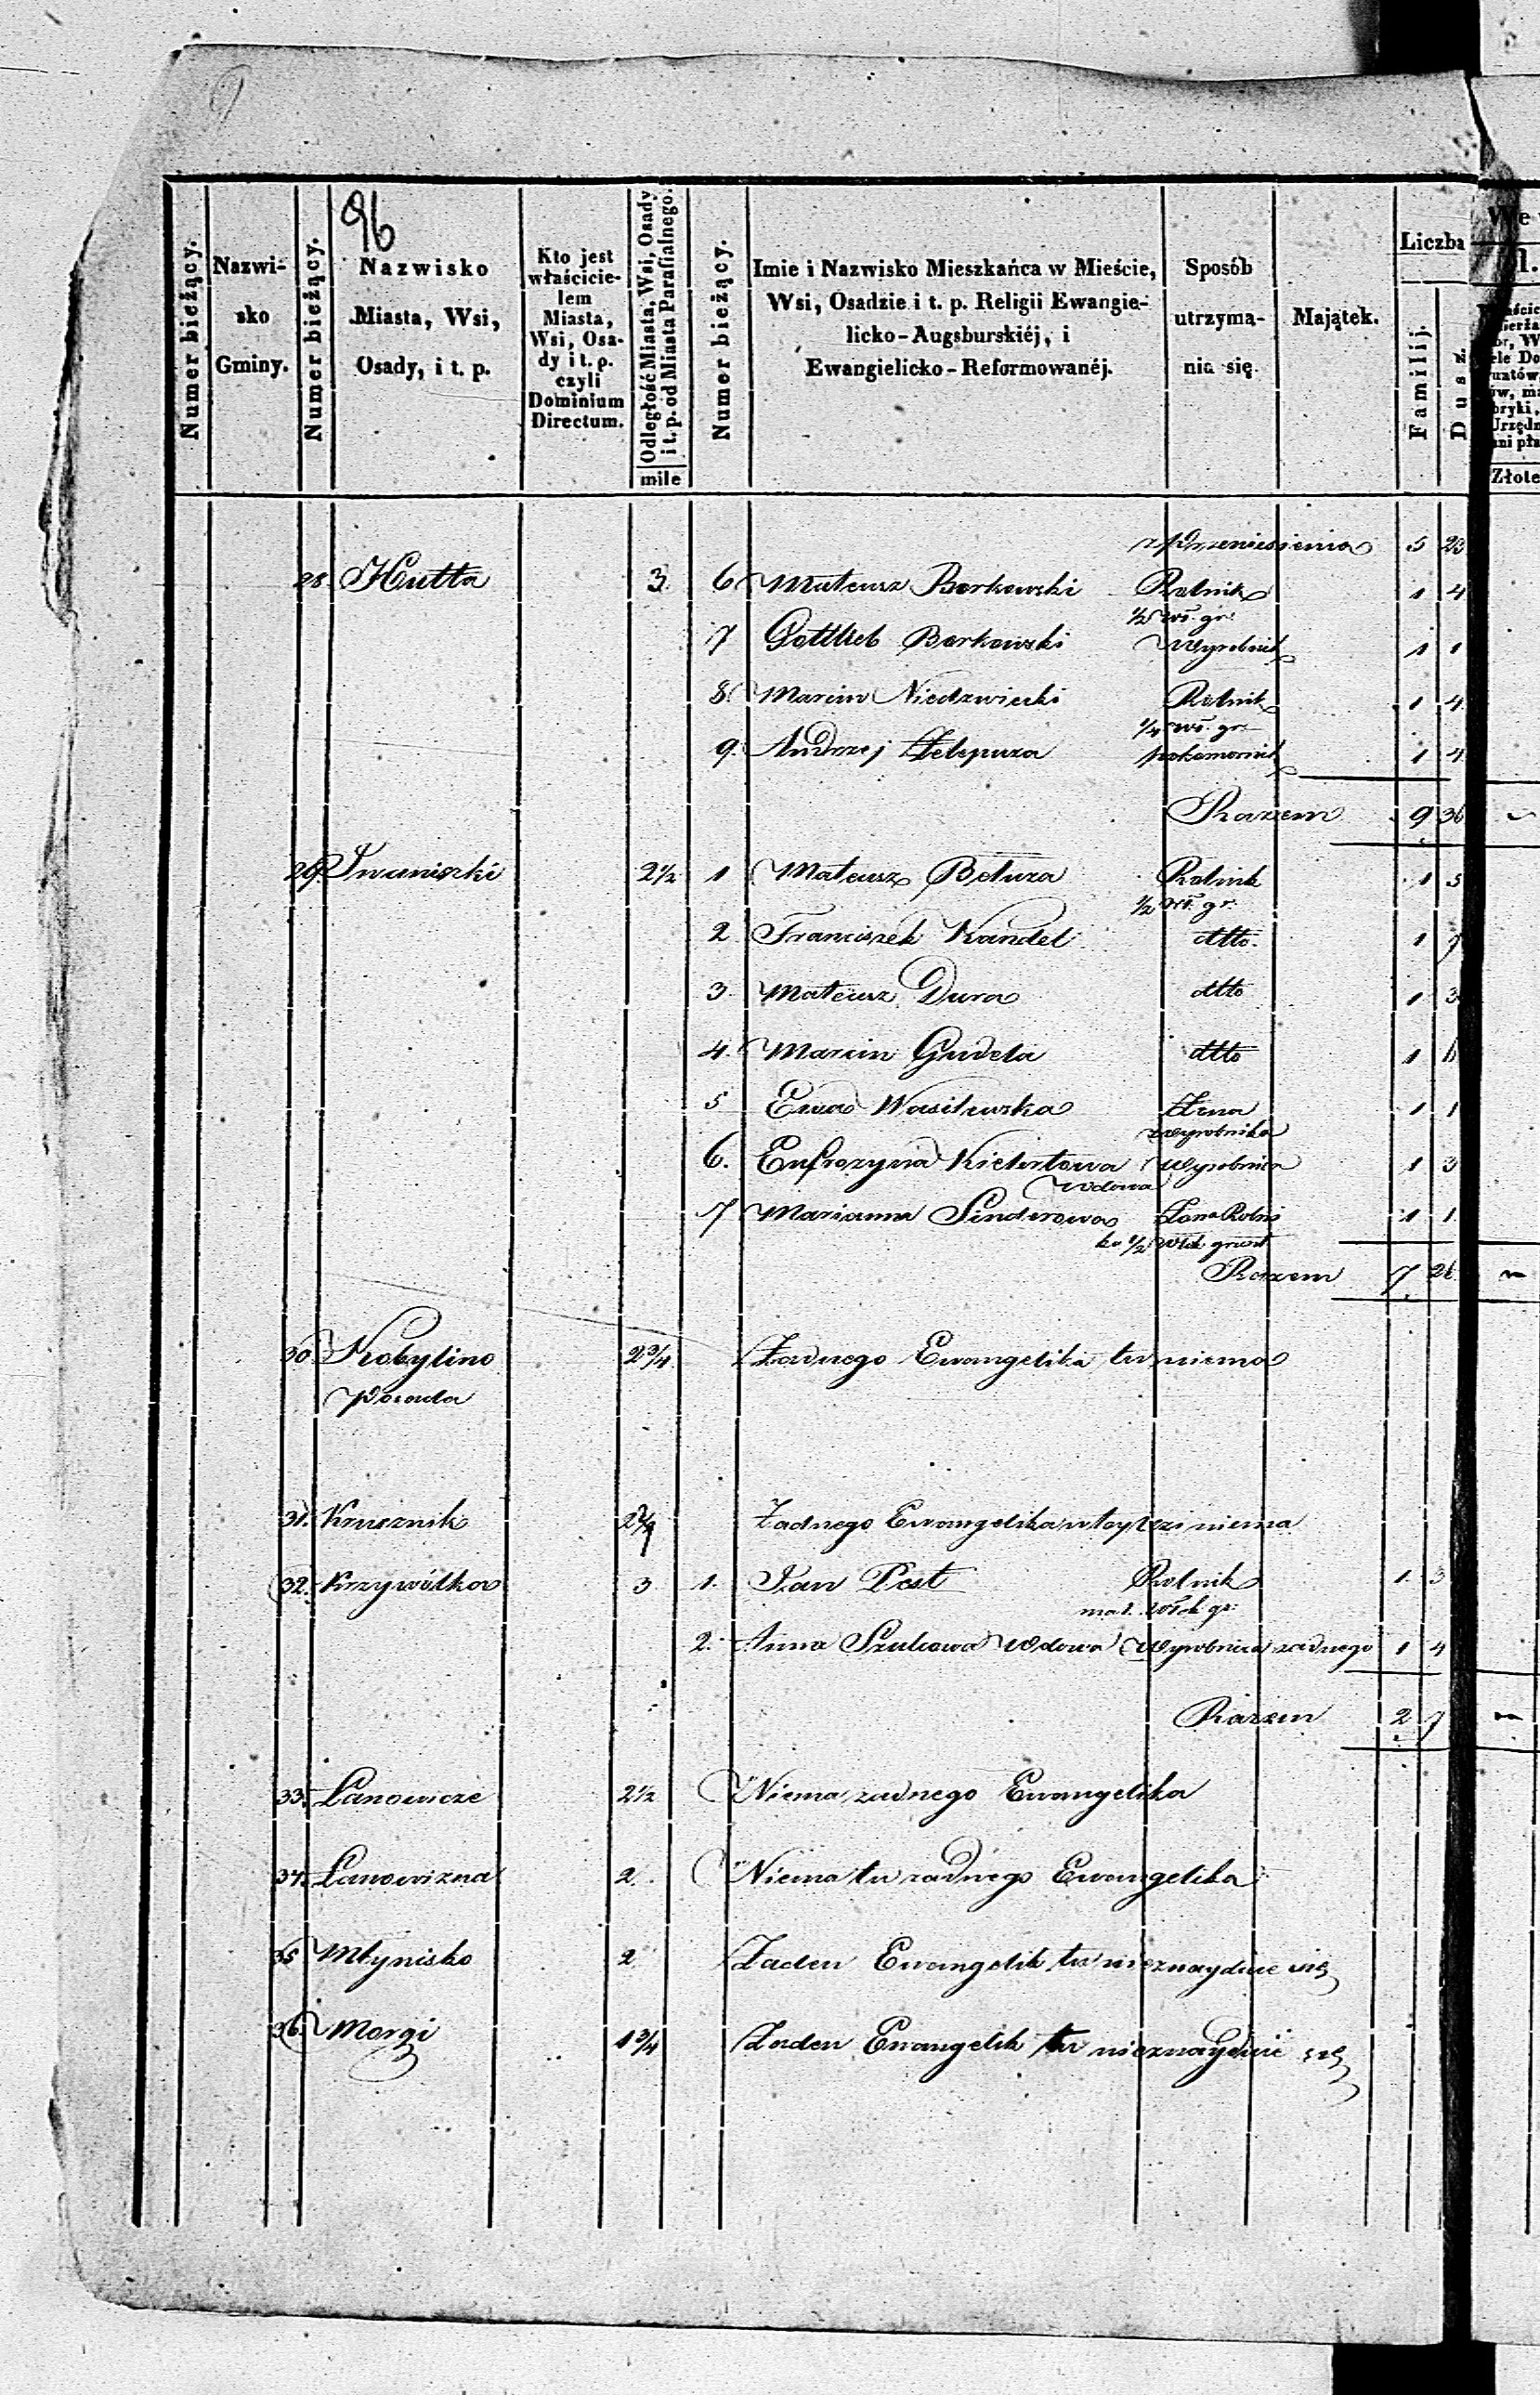 96
Numer bieżący.
Nazwi-
sko
Gminy.
Numer bieżący.
Nazwisko
Miasta, Wsi,
Osady, i t. p.
Kto jest
właścicie-
lem
Miasta,
Wsi, Osa-
dy i t. p.
czyli
Dominium
Directum.
Odległość Miasta, Wsi, Osady
i t. p. od Miasta Parafialnego.
mile
Numer bieżący.
Imie i Nazwisko Mieszkańca w Mieście,
Wsi, Osadzie i t. p. Religii Ewangie-
licko-Augsburskiéj, i
Ewangielicko-Reformowanéj.
Sposób
utrzyma-
nia się.
Majątek.
Liczba
Familij.
Dusz.
Złote
z przeniesienia 5 23
28. Hutta 3. 6 Mateusz Borkowski Rolnik 1 4
1/2 wł. gr.
7 Gottlieb Borkowski Wyrobnik 1 1
8. Marcin Niedzwiecki Rolnik 1 4
1/4 wł. gr.
9. Andrzej Żelepuza pokomornik 1 4
Razem 9 36
29. Iwaniszki 2 1/2 1 Mateusz Betuza Rolnik 1 5
1/2 wł. gr.
2 Franciszek Kandel dtto. 1 7
3. Mateusz Dura dtto 1 3
4. Marcin Gudela dtto 1 6
5 Ewa Wasilewska Żona 1 1
wyrobnika
6. Eufrozyna Kielertowa Wyrobnica 1 3
wdowa
7 Marianna Sinderowa Żona Rolni 1 1
ka 1/2 włók grunt
Razem 7 26
30. Kobylino 2 3/4 Żadnego Ewangelika tu niema
31. Krusznik Żadnego Ewangelika w tey wsi niema
32. Krzywólka 3 1. Jan Pest Rolnik 1. 3
ma 1. włók gr:
2. Anna Szulcowa wdowa Wyrobnica żadnego 1 4
Razem 2 7
33. Lanowicze 2 1/2 Niema żadnego Ewangelika
34. Lanowizna 2. Niema tu żadnego Ewangelika
35 Młynisko 2 Żaden Ewangelik tu nieznayduie się
36. Morgi 1 3/4 Żaden Ewangelik tu nieznayduie się